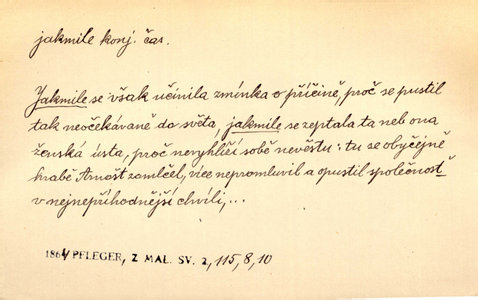 jakmile konj. čas.
Jakmile se však učinila zmínka o příčině, proč se pustil
tak neočekávaně do světa, jakmile se zeptala ta neb ona
ženská ústa, proč nevyhlíží sobě nevěstu: tu se obyčejně
hrabě Arnošt zamlčel, více nepromluvil a opustil společnost
v nejnepříhodnější chvíli,...
1864 PFLEGER, Z MAL. SV. 2, 115, 8, 10